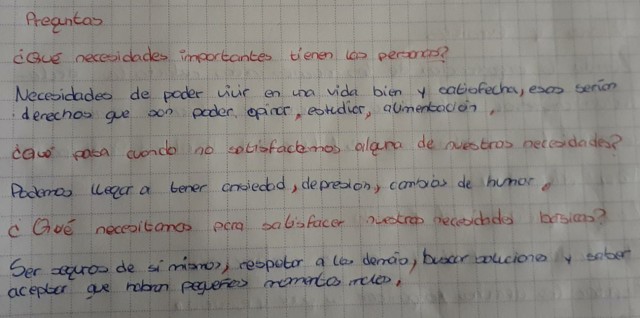 Preguntas
¿Qué necesidades importantes tienen las personas?
Necesidades de poder vivir en una vida bien y satisfecha, esas serían
derechos que son poder opinar, estudiar, alimentación.
¿Qué pasa cuando no satisfacemos alguna de nuestras necesidades?
Podemos llegar a tener ansiedad, depresion, cambios de humor.
¿Qué necesitamos para satisfacer nuestras necesidades basicas?
Ser seguros de si mismos, respetar a los demás, buscar soluciones y saber
aceptar que habran pequeños momentos malos.